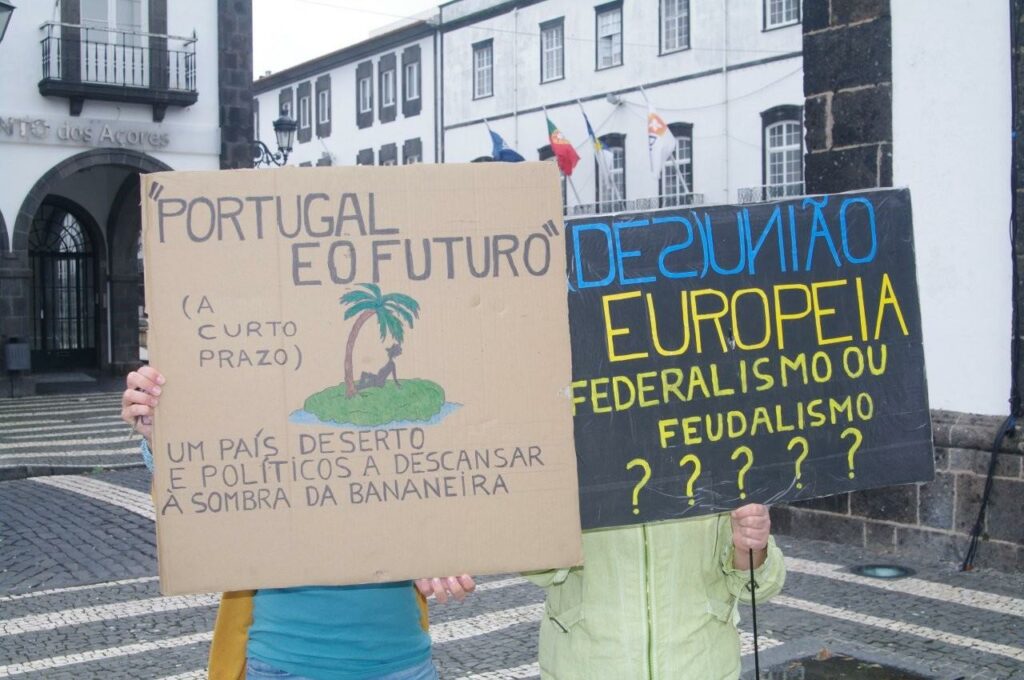 NTO dos Açores
"PORTUGAL
E O FUTURO"
(A
CURTO
PRAZO)
UM PAÍS DESERTO
E POLÍTICOS A DESCANSAR
À SOMBRA DA BANANEIRA
(DES)UNIÃO
EUROPEIA
FEDERALISMO OU
FEUDALISMO
? ? ? ? ?